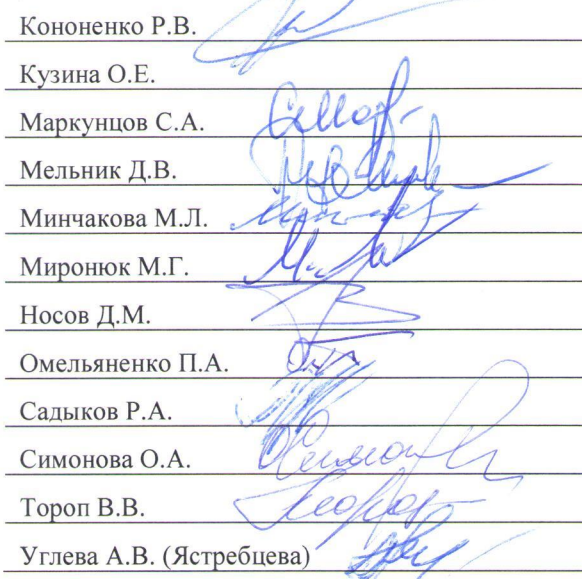 Кононенко Р.В.
Кузина О.Е.
Маркунцов С.А.
Мельник Д.В.
Минчакова М.Л.
Миронюк М.Г.
Носов Д.М.
Омельяненко П.А.
Садыков Р.А.
Симонова О.А.
Тороп В.В.
Углева А.В. (Ястребцева)